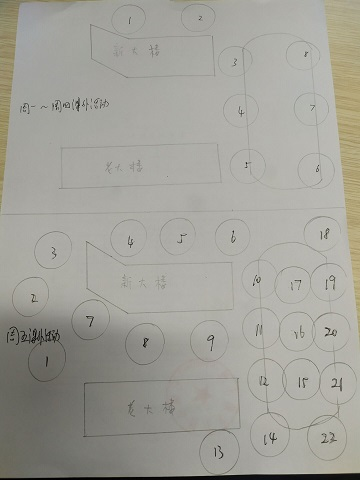 1 2
新大楼
3 8
周一~周四课外活动
4 7
老大楼
5 6
18
4 5 6
3
新大楼
10 17 19
2
7
周五课外活动
8 9
11 16 20
1
12 15 21
老大楼
14 22
13